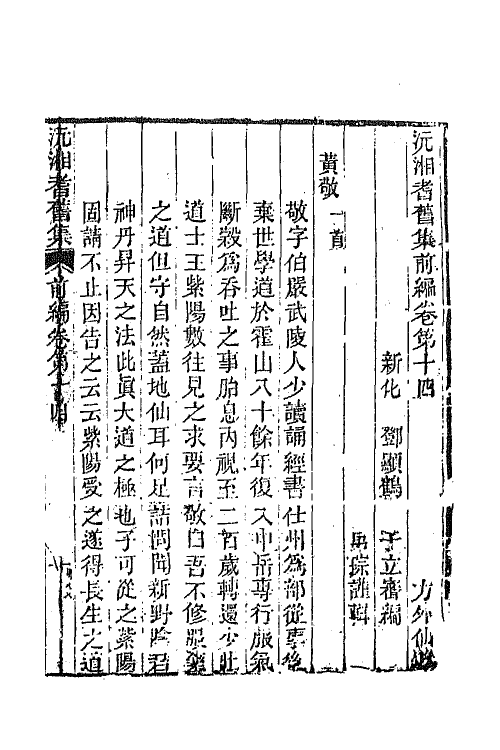 沅湘耆舊集前編卷第十四
方外仙
新化 鄧顯鶴 子立審編
男琮謹輯
黃敬一首
敬字伯嚴武陵人少讀誦經書仕州為部從事後
棄世學道於霍山八十餘年復入中岳專行服氣
斷穀為吞吐之事胎息內視至二百歲轉還少壯
道士王紫陽數往見之求要言敬曰吾不修服藥
之道但守自然蓋地仙耳何足詰問聞新野陰君
神丹昇天之法此真大道之極也子可從之紫陽
固請不止因告之云云紫陽受之遂得長生之道
沅湘耆舊集 前編卷第十四